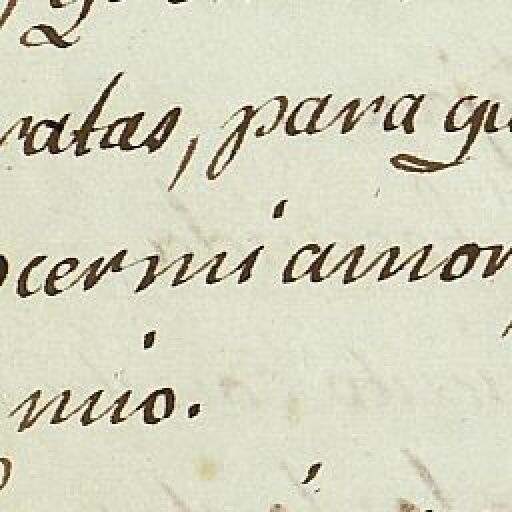 ratas, para qu
ocer mi amor,
mio.